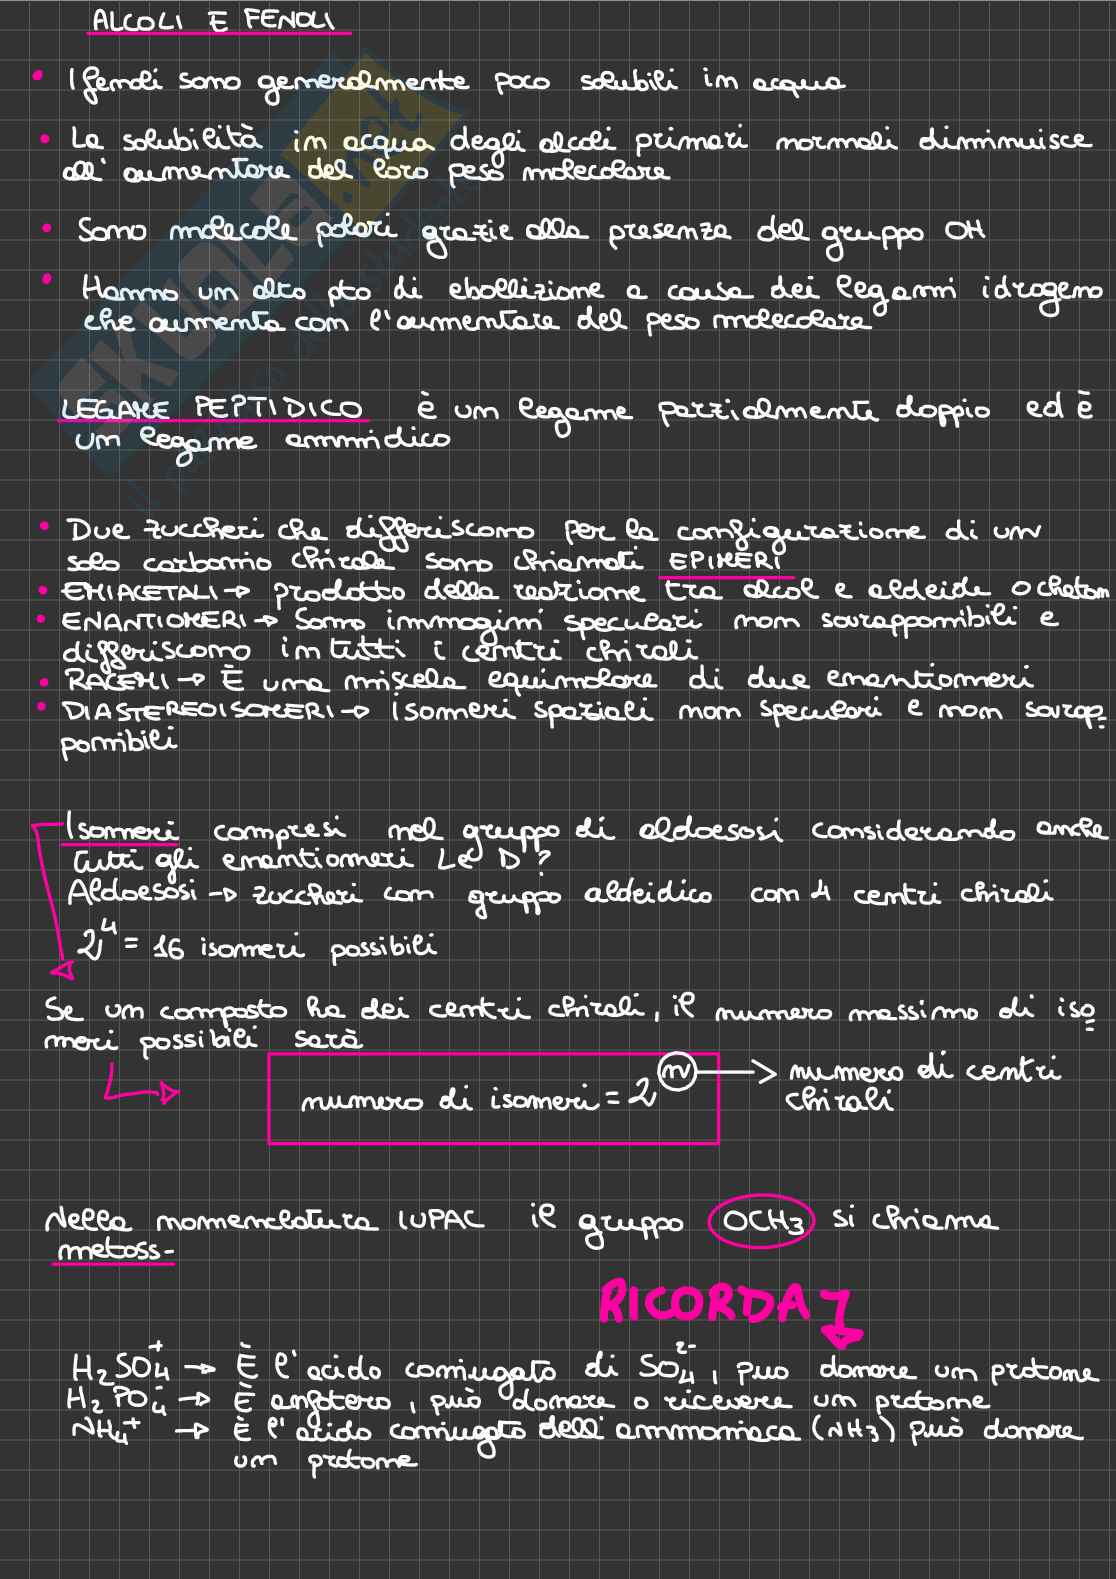 ALCOLI E FENOLI
• I fenoli sono generalmente poco solubili in acqua
• La solubilità in acqua degli alcoli primari normali diminuisce
all'aumentare del loro peso molecolare
• Sono molecole polari grazie alla presenza del gruppo OH
• Hanno un alto pto di ebollizione a causa dei legami idrogeno
che aumenta con l'aumentare del peso molecolare
LEGAME PEPTIDICO è un legame parzialmente doppio ed è
un legame ammidico
• Due zuccheri che differiscono per la configurazione di un
solo carbonio chirale sono chiamati EPIMERI
• EMIACETALI → prodotto della reazione tra alcol e aldeide o cheton
• ENANTIOMERI → Sono immagini speculari non sovrapponibili e
differiscono in tutti i centri chirali
• RACEMI → È una miscela equimolare di due enantiomeri
• DIASTEREOISOMERI → isomeri spaziali non speculari e non sovrap-
ponibili
Isomeri compresi nel gruppo di aldoesosi considerando anche
tutti gli enantiomeri L e D?
Aldoesosi → zuccheri con gruppo aldeidico con 4 centri chirali
2⁴ = 16 isomeri possibili
Se un composto ha dei centri chirali, il numero massimo di iso
meri possibili sarà
numero di isomeri = 2ⁿ → numero di centri
chirali
Nella nomenclatura IUPAC il gruppo OCH3 si chiama
metoss-
RICORDA
H2SO4+ → È l'acido coniugato di SO4 2-, puo donare un protone
H2PO4- → È anfotero, può donare o ricevere un protone
NH4+ → È l'acido coniugato dell'ammoniaca (NH3) può donare
un protone